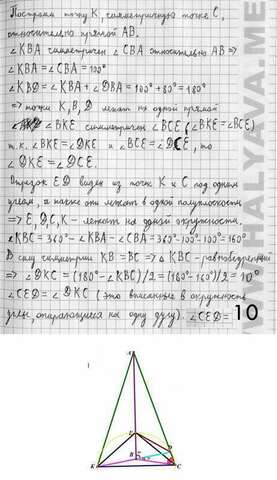 Построим точку K, симметричную точке C,
относительно прямой AB.
∠KBA симметричен ∠CBA относительно AB =>
∠KBA = ∠CBA = 100°
∠KBD = ∠KBA + ∠DBA = 100° + 80° = 180°
=> точки K, B, D лежат на одной прямой
∠BKE симметричен ∠BCE (∠BKE = ∠BCE)
т.к. ∠BKE = ∠DKE и ∠BCE = ∠DCE, то
∠DKE = ∠DCE.
Отрезок ED виден из точек K и C под одним
углом, а также они лежат в одной полуплоскости
=> E, D, C, K - лежат на одной окружности.
∠KBC = 360° - ∠KBA - ∠CBA = 360° - 100° - 100° = 160°
В силу симметрии KB = BC => △ KBC - равнобедренный
=> ∠DKC = (180° - ∠KBC)/2 = (180° - 160°)/2 = 10°
∠CED = ∠DKC (это вписанные в окружность
углы, опирающиеся на одну дугу). ∠CED = 10
WWW.HALYAVA.ME
A
E
B
D
K
C